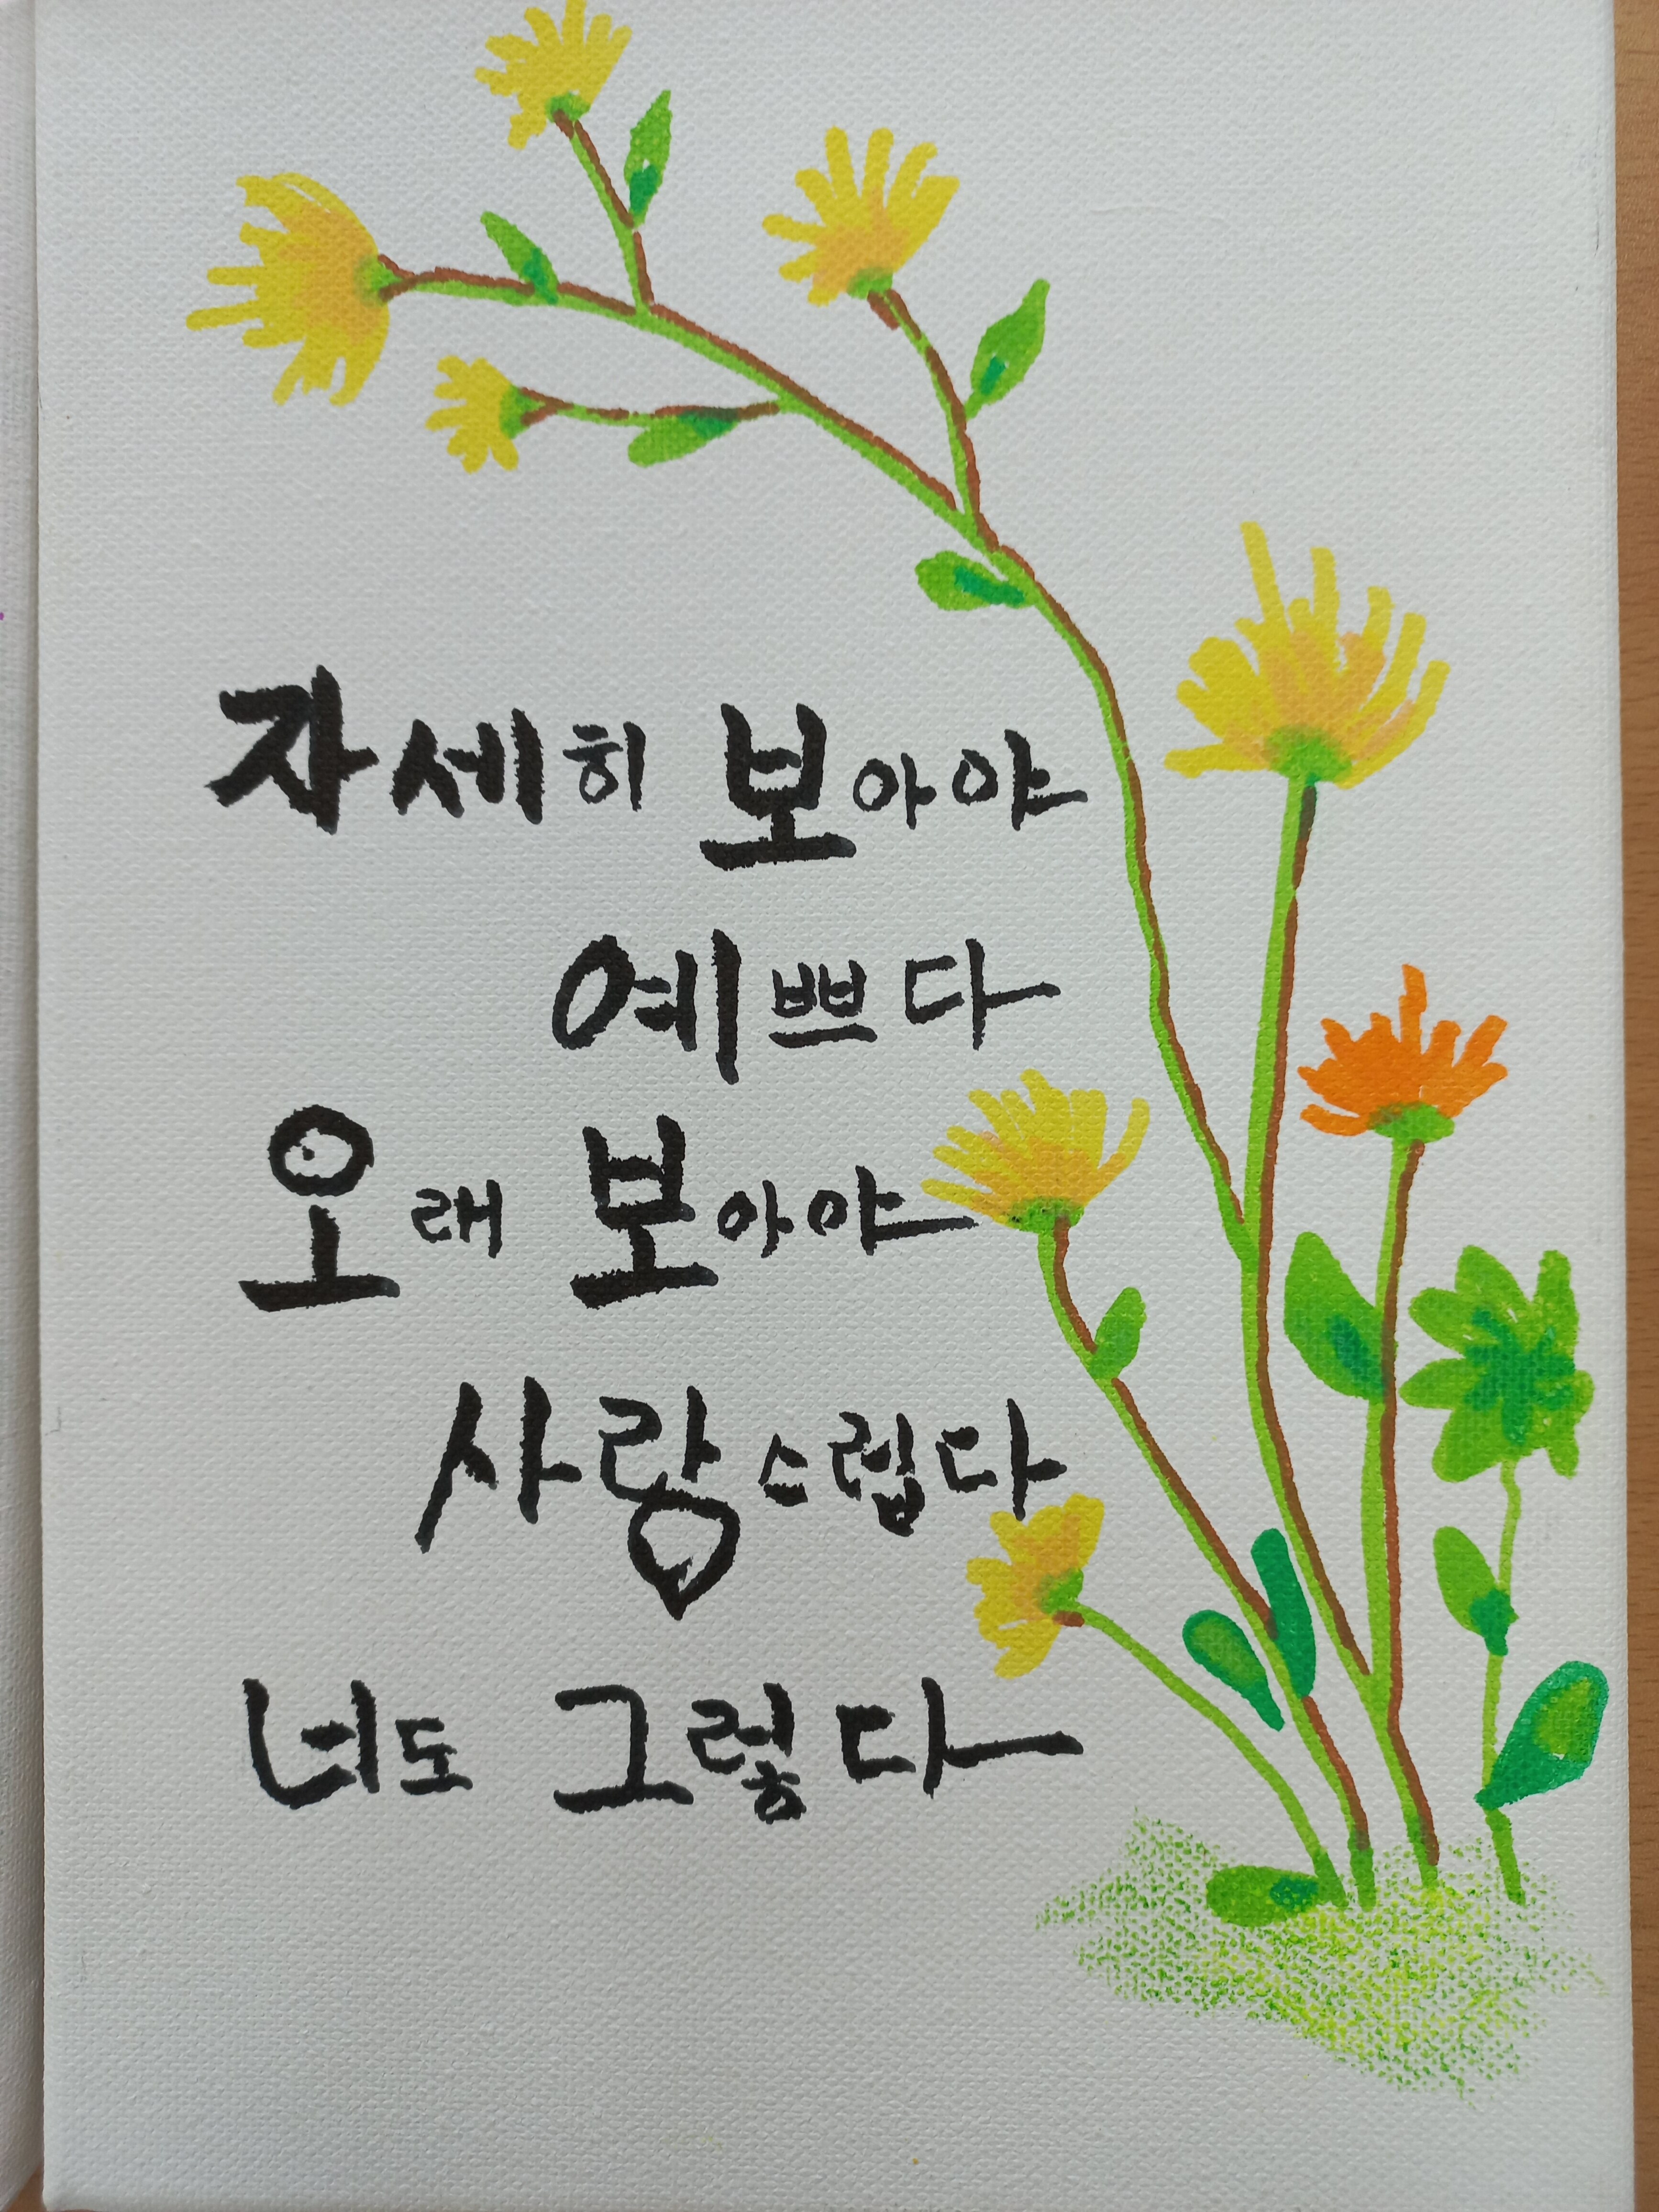 자세히 보아야
예쁘다
오래 보아야
사랑스럽다
너도 그렇다